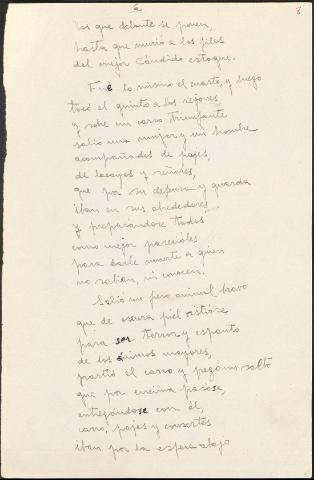 6
8
los que delante se ponen,
hasta que murió a los filos
del mejor Cándido estoque.
Fué lo mismo el cuarto, y luego
tocó el quinto a los rejones,
y sobre un carro triunfante
salió una mujer y un hombre
acompañados de pajes,
de lacayos y señores,
que por su defensa y guarda
iban en sus alrededores
y preparándose todos
como mejor parecioles
para darle muerte a quien
no sabían, ni conocen.
Salió un fiero animal bravo
que de oscura piel vistióse
para ser terror y espanto
de los ánimos mayores,
partió el carro y pegó un salto
que por encima pasóse,
entregándose con él,
carro, pajes y consortes
iban por la esfera abajo